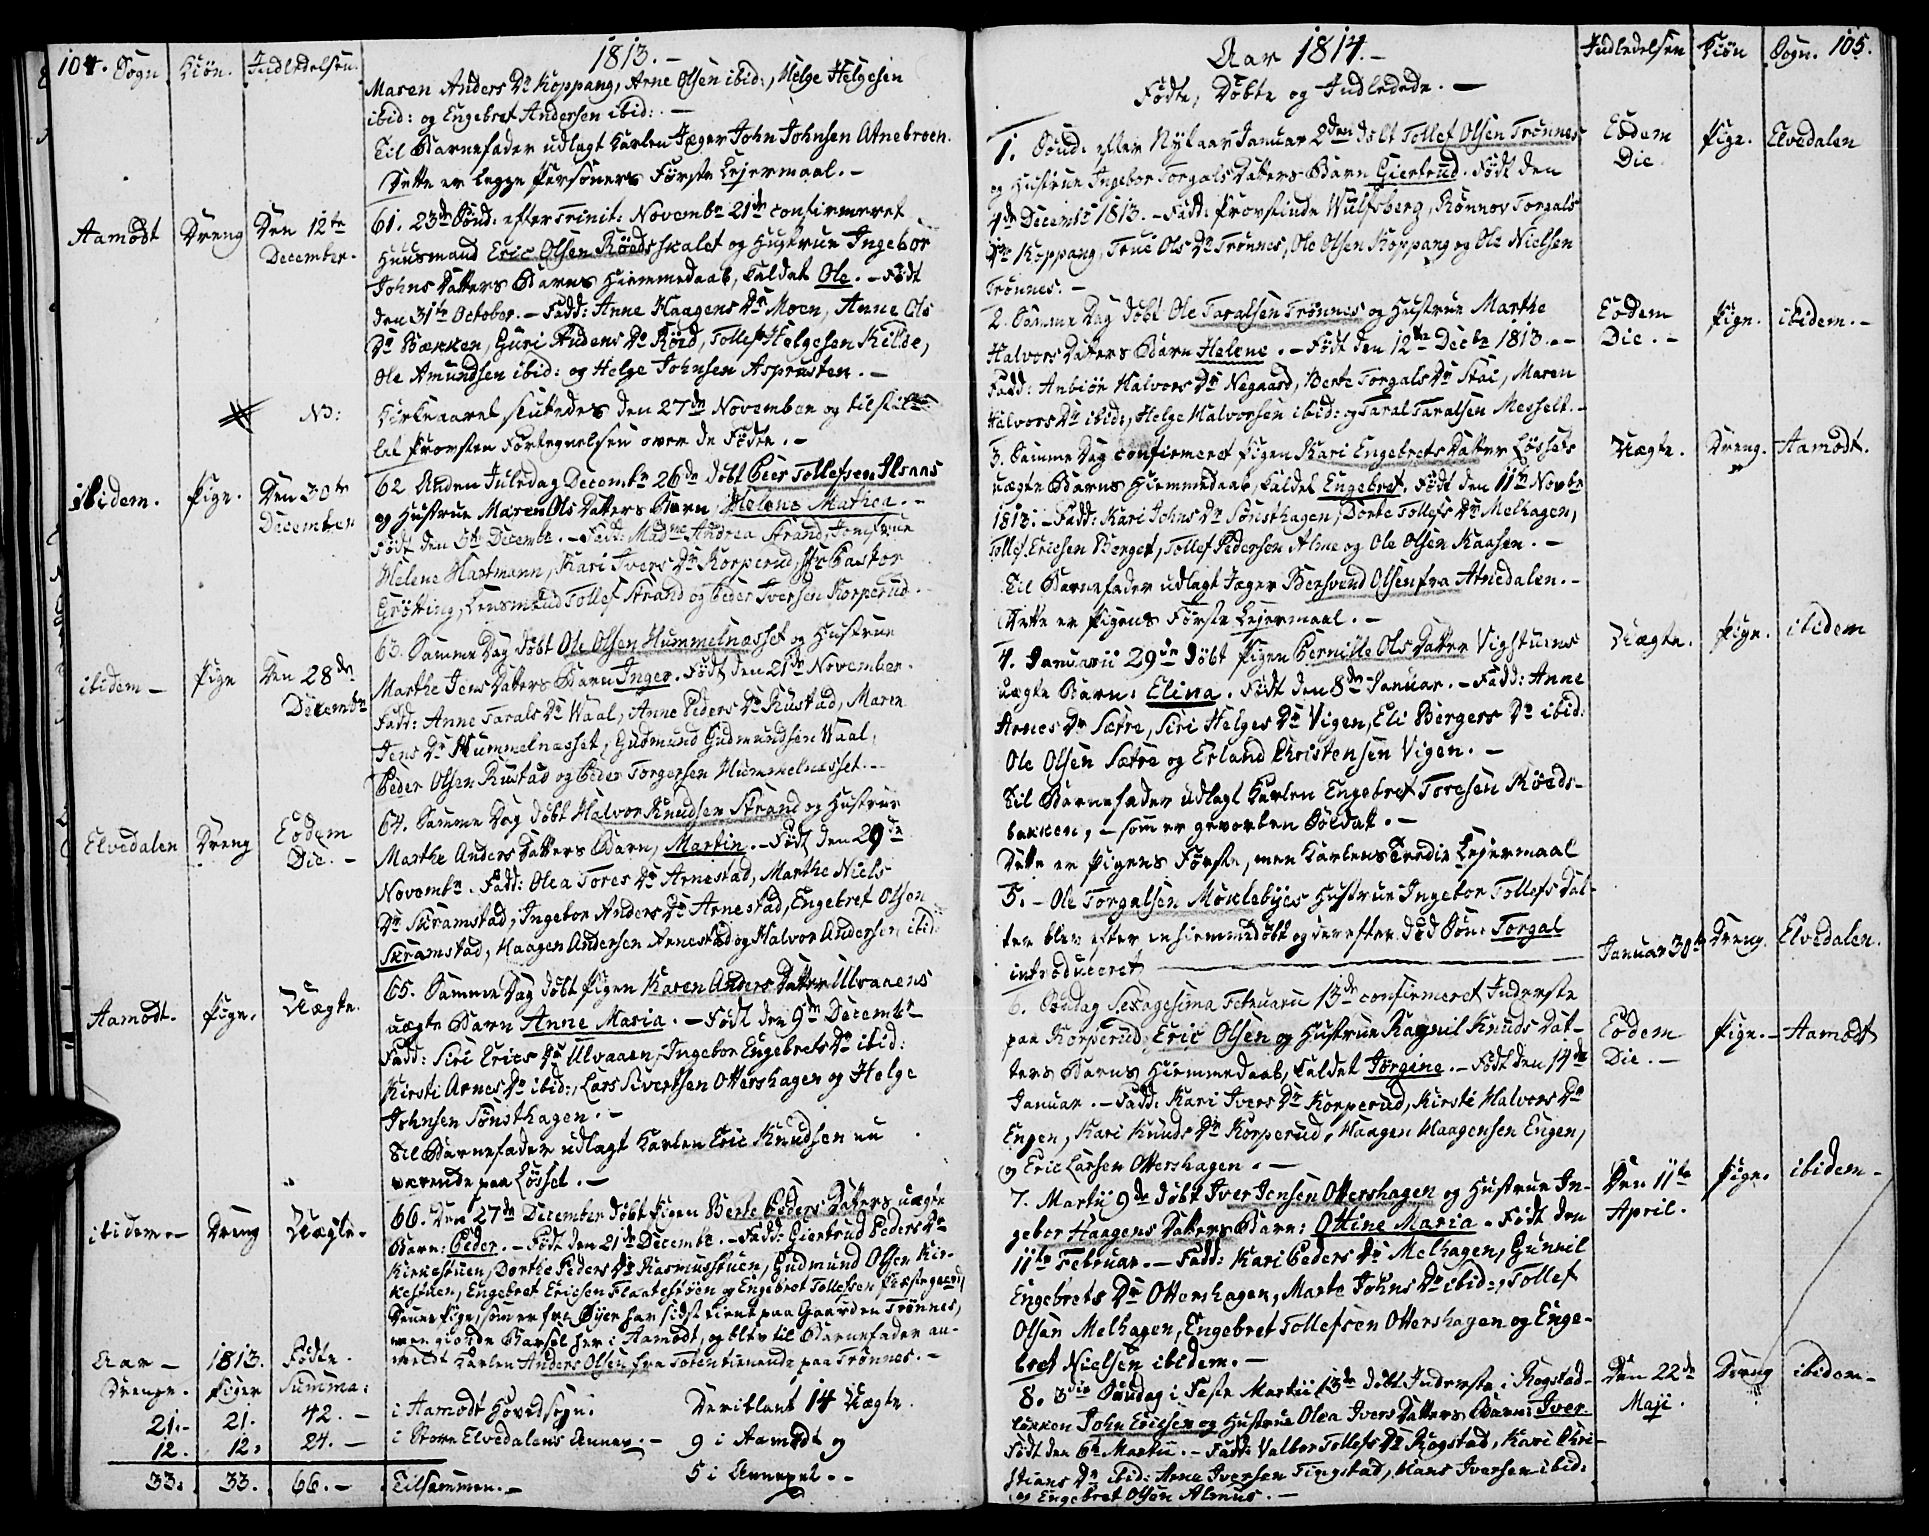 104. Sogn Kiön. Indledelsen. 1813.-
Maren Anders Dr Koppang, Arne Olsen ibid:, Helge Helgesen
ibid: og Engebret Andersen ibid:. -
Til Barnefader udlagt Karlen Jæger John Johnsen Atnebroen.
Dette er begge Personers Første Lejermaal. -
Aamodt Dreng Den 12te December.
61. 23de Sönd: efter Trinit: Novembr 21de confirmeret
Huusmand Eric Olsen Röedsskalet og Hustrue Ingebor
Johns Datters Barns Hiemmedaab, kaldet Ole. - Født
den 31te October. - Fadd: Anne Haagens Dr Moen, Anne Ols
Dr Bækken, Guri Audens Dr Röed, Tollef Helgesen Kilde,
Ole Amundsen ibid: og Helge Johnsen Asprusten. -
NB: Kirkeaaret sluttedes den 27de November og tilstil-
let Provsten Fortegnelsen over de Fødte. -
ibidem. Pige. Den 30te December
62 Anden Juledag Decembr 26de døbt Peer Tollefsen Ilsaas
og Hustrue Maren Ols Datters Barn, Helene Mathea. -
Født den 5te Decembr. - Fadd: Madme Andrea Strand, Jomfrue
Helene Hartmann, Kari Ivers Dr Korperud, Hr Pastor
Grötting, Lensmand Tollef Strand og Peder Iversen Korperud.
ibidem - Pige Den 28de Decembr
63. Samme Dag døbt Ole Olsen Hummelnæsset og Hustrue
Marthe Jens Datters Barn Inger. Født den 21de November.
Fadd: Anne Tarals Dr Waal, Anne Peders Dr Rustad, Maren
Jens Dr Hummelnæsset, Gudmund Gudmundsen Waal,
Peder Olsen Rustad og Peder Torgersen Hummelnæsset. -
Elvedalen Dreng Eodem Die. -
64. Samme Dag døbt Halvor Knudsen Strand og Hustrue
Marthe Anders Datters Barn, Martin. - Født den 29de
Novembr. Fadd: Olea Tores Dr Arnestad, Marthe Niels
Dr Skramstad, Ingebor Anders Dr Arnestad, Engebret Olsen
Skramstad, Haagen Andersen Arnestad og Halvor Andersen ibid:
Aamodt. Pige. Uægte.
65. Samme Dag døbt Pigen Karen Anders Datter Ulvaaens
uægte Barn Anne Maria. - Født den 9de Decembr
Fadd: Siri Erics Dr Ulvaaen, Ingebor Engebrets Dr ibid:
Kirsti Arnes Dr ibid:, Lars Sivertsen Ottershagen og Helge
Johnsen Sönsthagen. -
Til Barnefader udlagt Karlen Eric Knudsen nu
værende paa Lösset. -
ibidem - Dreng Uægte.
66. Den 27de December døbt Pigen Berte Peders Datters uægte
Barn: Peder. - Født den 21de Decembr. - Fadd: Giertrud Peders Dr
Kirkestuen, Dorthe Peders Dr Rasmusstuen, Gudmund Olsen Kir-
kestuen, Engebret Ericsen Flaatestöen og Engebret Tollefsen Præstegaard
Denne Pige, som er fra Öyer har sidst tient paa Gaarden Trönnes,
men giorde Barsel her i Aamodt, og blev til Barnefader an-
meldt Karlen Anders Olsen fra Toten tienende paa Trönnes. -
Aar - 1813. Födte.
Drenge. Piger Summa:
21. - 21. 42. - i Aamodt Hovedsogn. Deriblant 14 Uægte.
12. 12. 24. - i Store Elvedalens Annex. - 9 i Aamodt og
33. 33. 66. - Tilsammen. - 5 i Annexet. -
Aar 1814. - Indledelsen Kiön Sogn. 105.
Fødte, Døbte og Indledede. -
1. Sönd: efter Nytaar Januar 2den døbt Tollef Olsen Trönnes Eodem Die Pige. Elvedalen
og Hustrue Ingebor Torgals Datters Barn Giertrud. Født den
4de Decembr 1813. - Fadd: Provstinde Wulfsberg, Rönnov Torgals
Dr Koppang, True Ols Dr Trönnes, Ole Olsen Koppang og Ole Nielsen
Trönnes. -
2. Samme Dag døbt Ole Taralsen Trönnes og Hustrue Marthe Eodem Die. - Pige. ibidem. -
Halvors Datters Barn Helene. - Født den 12te Decbr 1813. -
Fadd: Anbiör Halvors Dr Negaard, Berte Torgals Dr Stai, Maren
Halvors Dr ibid:, Helge Halvorsen ibid: og Taral Taralsen Messelt. -
3. Samme Dag confirmeret Pigen Kari Engebrets Datter Lössets Uægte. Dreng. Aamodt.
uægte Barns Hiemmedaab, kaldet Engebret. Født den 11te Novbr
1813. - Fadd: Kari Johns Dr Sönsthagen, Dorte Tollefs Dr Melhagen,
Tollef Ericsen Berget, Tollef Pedersen Alme og Ole Olsen Kaasen. -
Til Barnefader udlagt Jæger Bersvend Olsen fra Atnedalen. -
Dette er Pigens Første Lejermaal. -
4. Januarii 29de døbt Pigen Pernille Ols Datter Vigstuens Uægte. Pige. ibidem
uægte Barn: Elina. Født den 8de Januar. - Fadd: Anne
Arnes Dr Sætre, Siri Helges Dr Vigen, Eli Bergers Dr ibid:
Ole Olsen Sætre og Erland Christensen Vigen. -
Til Barnefader udlagt Karlen Engebret Toresen Röeds-
bakken, - som er gevorben Soldat. -
Dette er Pigens Første, men Karlens Tredie Lejermaal
5. - Ole Torgalsen Möklebyes Hustrue Ingebor Tollefs Dat-
ter blev efter en hiemmedøbt og derefter død Søn: Torgal Januar 30te Dreng. Elvedalen.
introduceret
6. Söndag Sexagesima Februarii 13de confirmeret Inderste
paa Korperud, Eric Olsen og Hustrue Ragnil Knuds Dat- Eodem Die. - Pige. - Aamodt
ters Barns Hiemmedaab, kaldet Jørgine. - Født den 14de
Januar. - Fadd: Kari Ivers Dr Korperud, Kirsti Halvors Dr
Engen, Kari Knuds Dr Korperud, Haagen Haagensen Engen,
og Eric Larsen Ottershagen. -
7. Martii 9de døbt Iver Jensen Ottershagen og Hustrue In- Den 11te April. Pige. ibidem -
gebor Haagens Datters Barn: Ottine Maria. Født den
11te Februar. - Fadd: Kari Peders Dr Melhagen, Gunnil
Engebrets Dr Ottershagen, Marte Johns Dr ibid:, Tollef
Olsen Melhagen, Engebret Tollefsen Ottershagen og Enge-
bret Nielsen ibidem. -
8. 3die Söndag i Faste Martii 13de døbt Inderste i Rogstad- Den 22de Maji. Dreng ibidem -
løkken John Ericsen og Hustrue Olea Ivers Datters Barn: Iver.
Født den 6te Martii. - Fadd: Valbor Tollefs Dr Rogstad, Kari Chri-
stians Dr ibid: Arne Iversen Tingstad, Hans Iversen ibid:
og Engebret Olsen Almus. -